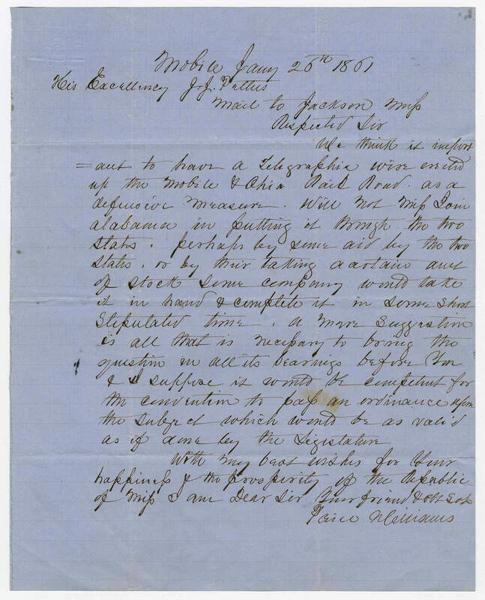 Mobile Jany 26th 1861
His Excellency J.J. Pettus
Mail to Jackson Miss
Respected Sir
We think it import
=ant to have a Telegraphic wire erected
up the Mobile & Ohio Rail Road. as a
defensive measure. Will not Miss Join
Alabama in putting it through the two
States. perhaps by some aid by the two
States. or by their taking a certain amt
of stock some company would take
it in hand & complete it in some short
Stipulated time. A mere suggestion
is all that is necessary to bring the
question in all its bearings before You
& I suppose it would be competent for
the convention to pass an ordinance upon
the subject which would be as valid
as if done by the Legislature
With my best wishes for Your
happiness & the prosperity of the Republic
of Miss I am Dear Sir Your friend & Obt
Price Williams